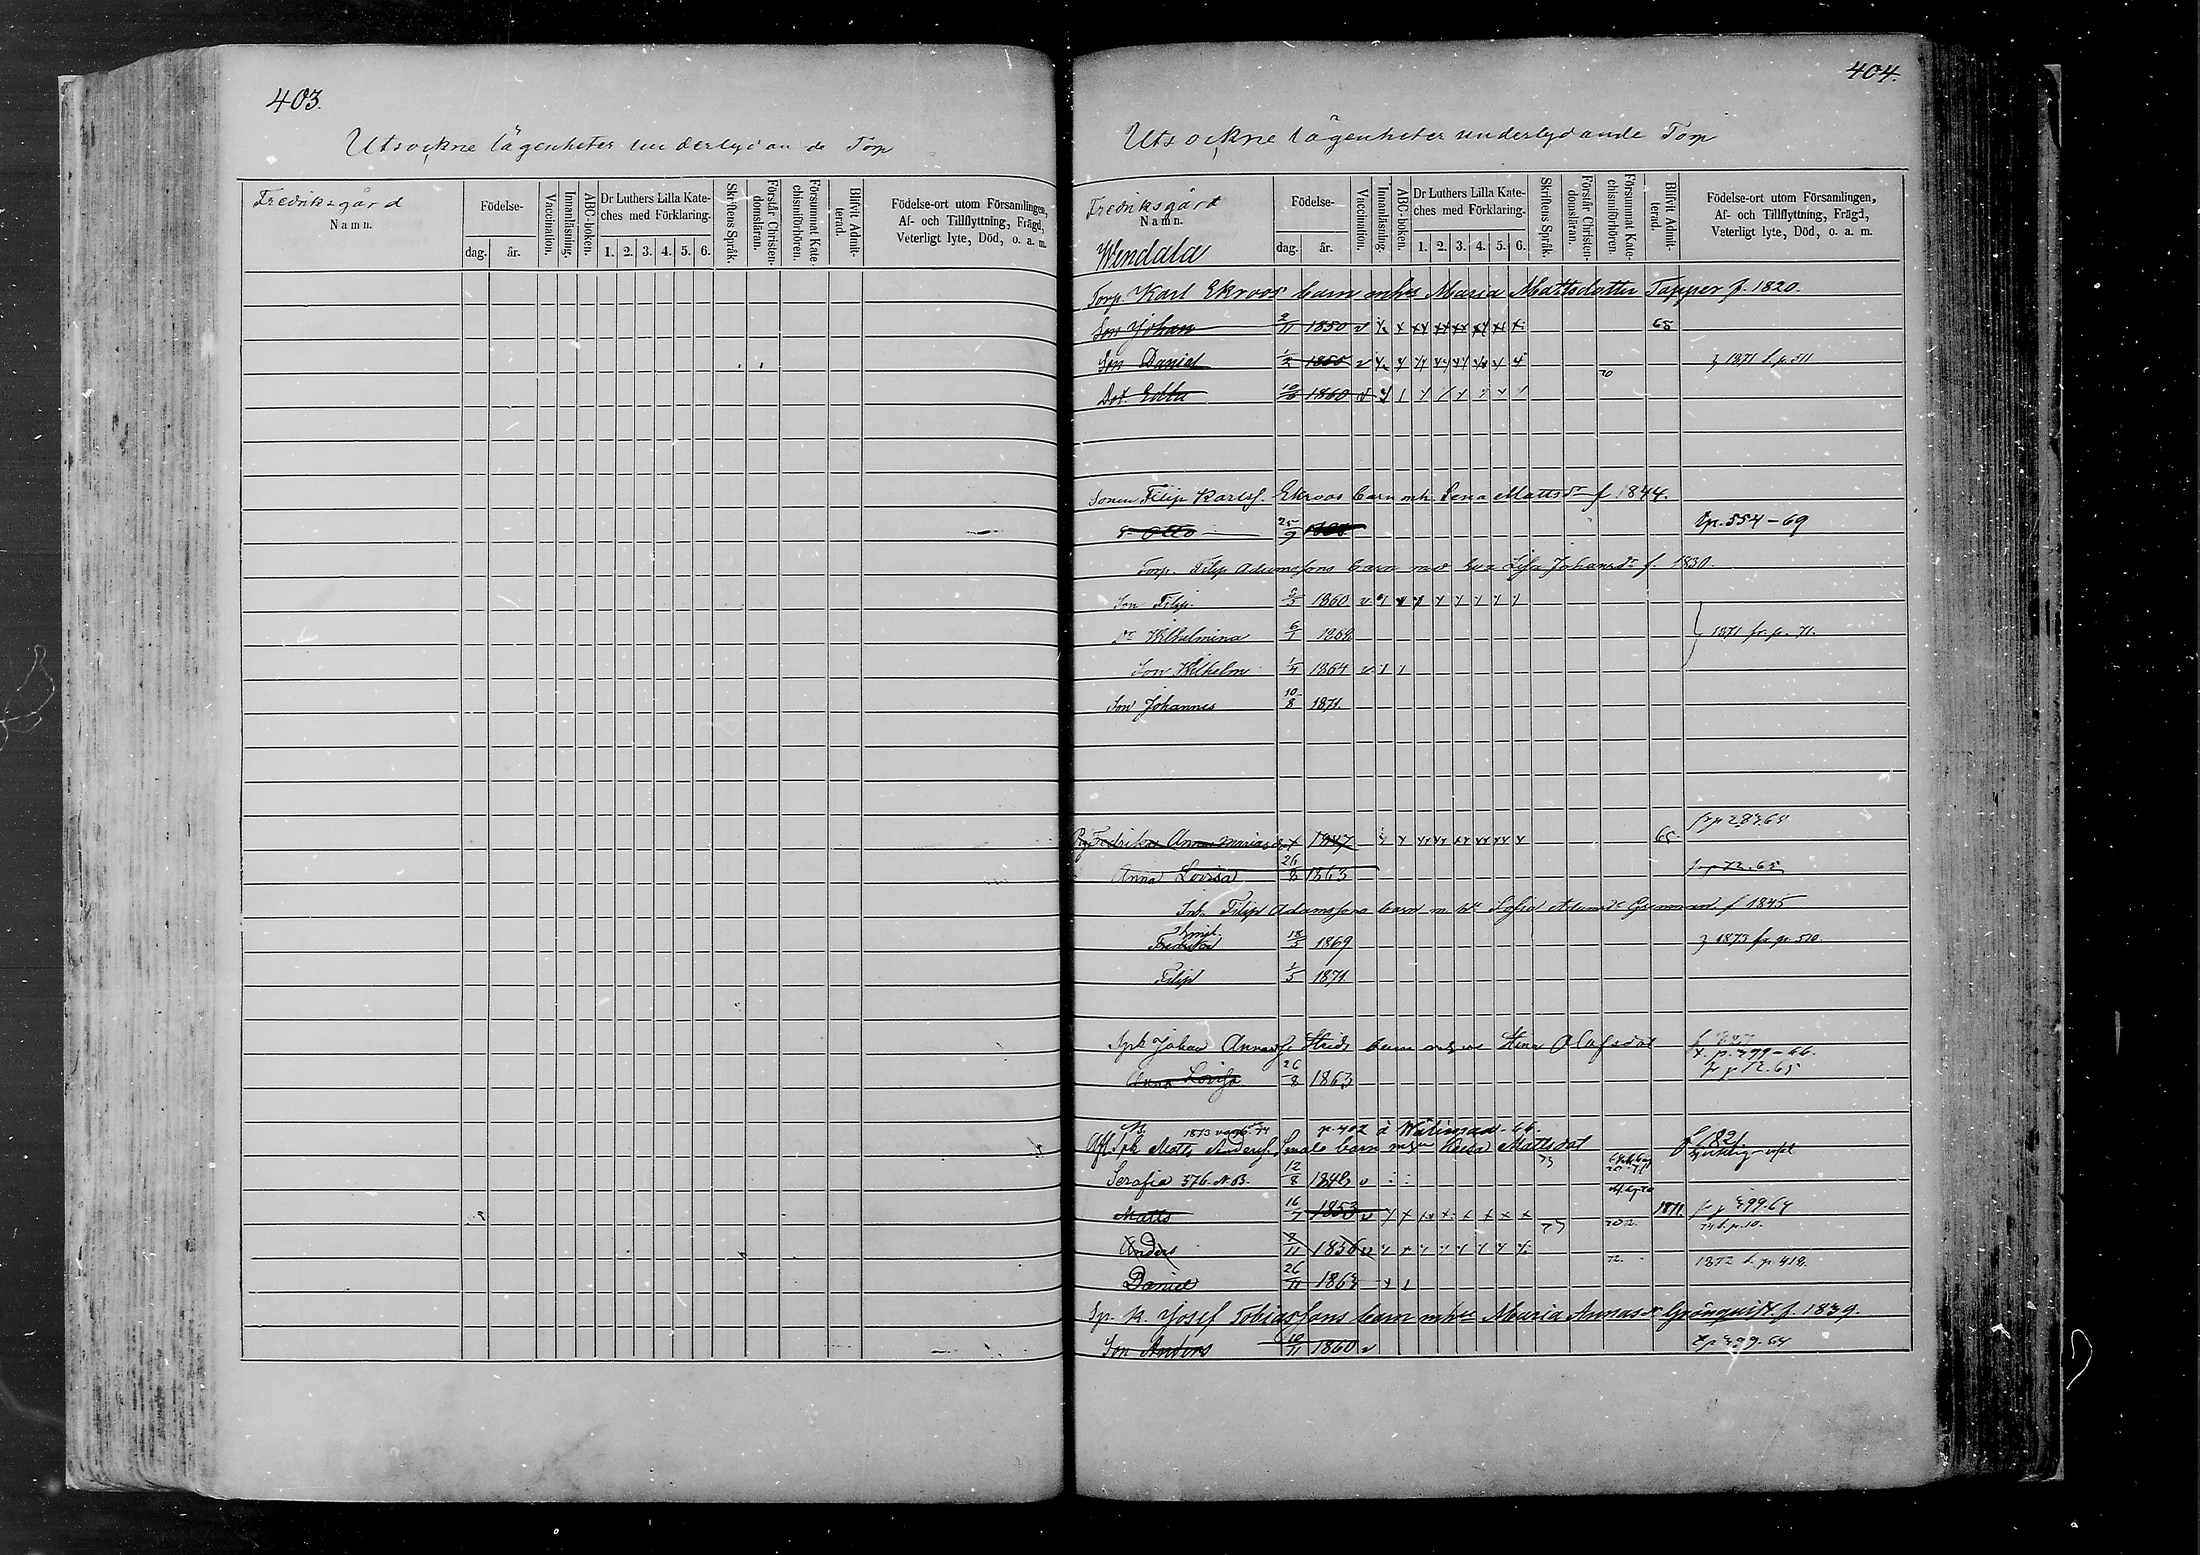 403.
Utsockne lägenheter underlydande Torp
Fredriksgård
Namn.
Födelse-
dag. år.
Vaccination.
Innanläsning.
ABC-boken.
Dr Luthers Lilla Kate-
ches med Förklaring.
1. 2. 3. 4. 5. 6.
Skriftens Språk.
Förstår Christen-
domsläran.
Försummat Kate-
chismiförhören.
Blifvit Admit-
terad.
Födelse-ort utom Församlingen,
Af- och Tillflyttning, Frägd,
Veterligt lyte, Död, o. a. m.
404.
Utsockne lägenheter underlydande Torp
Fredriksgård
Namn.
Wendala
Födelse-
dag. år.
Vaccination.
Innanläsning.
ABC-boken.
Dr Luthers Lilla Kate-
ches med Förklaring.
1. 2. 3. 4. 5. 6.
Skriftens Språk.
Förstår Christen-
domsläran.
Försummat Kate-
chismiförhören.
Blifvit Admit-
terad.
Födelse-ort utom Församlingen,
Af- och Tillflyttning, Frägd,
Veterligt lyte, Död, o. a. m.
Torp. Karl Ekroos barn mhu Maria Mattsdotter Tapper f. 1820.
Son Johan 2/11 1850 65
Son Daniel 1/2 70 1871 t. p. 511
Dot. Edla 1860
Sonen Filip Karlsf. Ekroos barn mh. Lena Mattsdr f 1844.
Sn Otto 25/9 p. 554-69
Torp. Filip Adamssons barn med Lisa Johansdr f. 1830.
Son Filip 1860
Dr Wilhelmina 6/1 1871 fr. p. 71.
Son Wilhelm 1/4 1864
Son Johannes 10/8 1871.
Fredrika Annamariasdot 1847 65
Anna Lovisa 26/8 1863 p 72.65
Inh. Filip Adamssons barn m. hu Sofia Adamsdr f 1845
Emil
18/3 1869 1873 fr. p. 510.
Filip 1871.
Spk Johan barn Stina Olofsdot
t. p. 499-66.
Anna Lovisa 26/8 1863 fr p 72.65
p. 402 66.
Spk Matts Andersf. barn Kaisa Mattsdot f 1821.
Serafia 376. N. B. 12/8 1848
Matts 16/7 1853 1871. 499.64
Anders 1856 72. 1872 t. p. 418.
Daniel 26/11 1863
Sp. K. Josef Tobiassons barn mhu Maria Annasdr Grönqvist. f. 1839.
Son Anders 10/11 1860 499.64